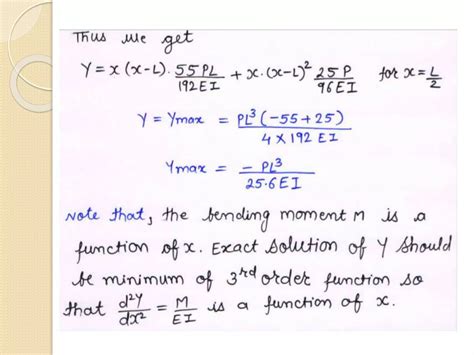 Thus we get
Y = x (x-L). 55PL/192EI + x.(x-L)² 25P/96EI for x = L/2
Y = Ymax = PL³(-55+25)/4 x 192 EI
Ymax = - PL³/25.6EI
Note that, the bending moment M is a
function of x. Exact solution of Y should
be minimum of 3rd order function so
that d²Y/dx² = M/EI is a function of x.